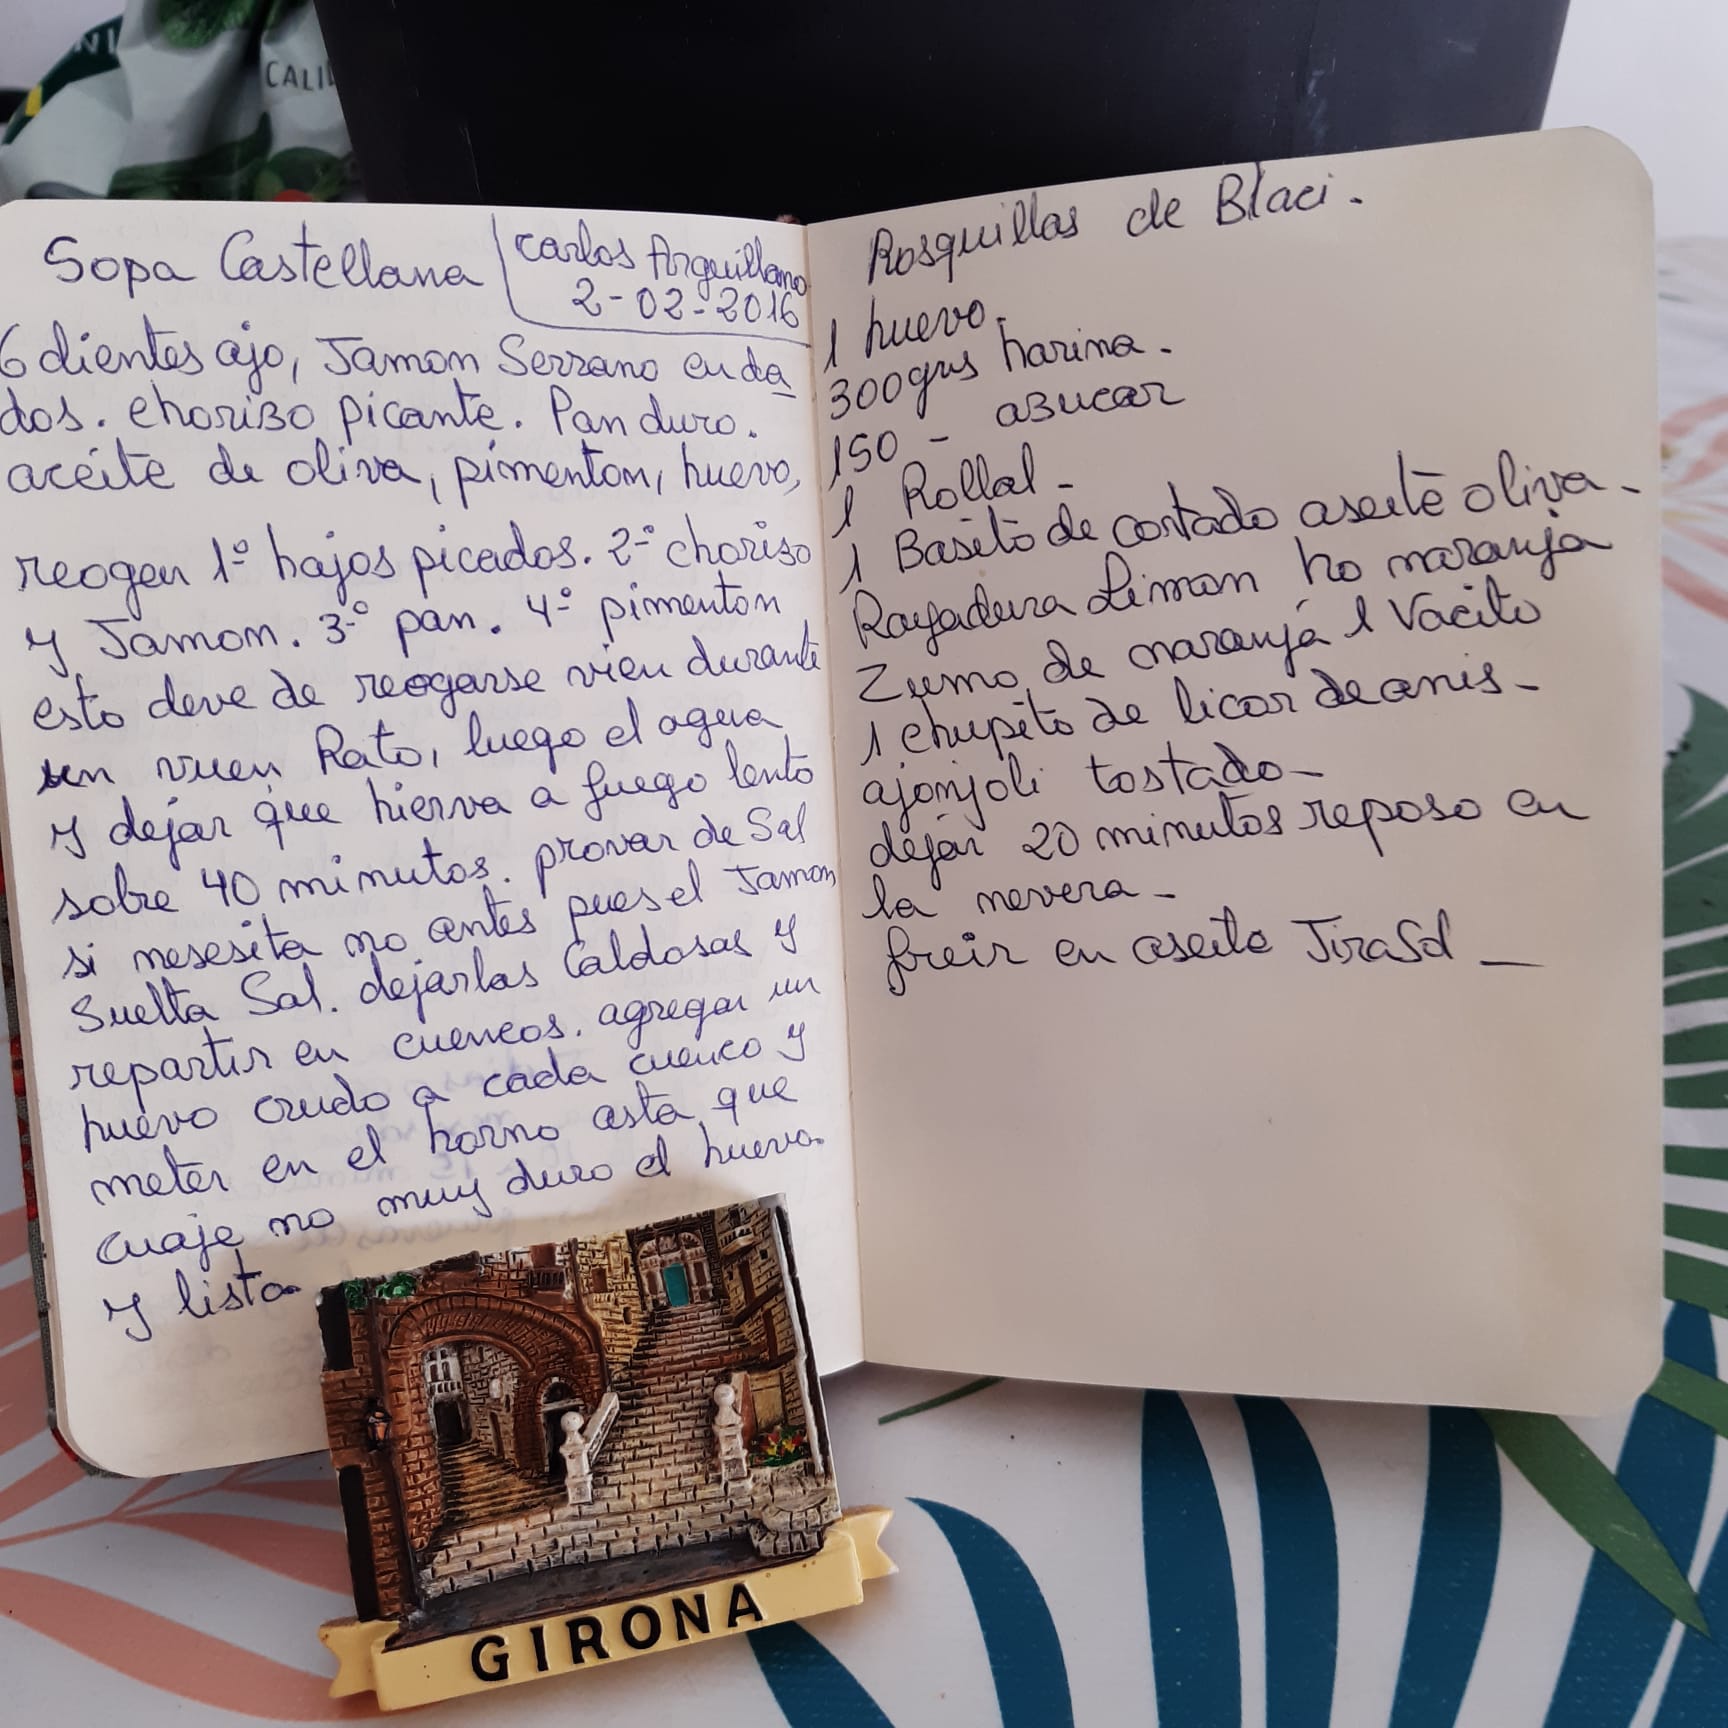 CALI
Sopa Castellana
Carlos Arguillano
2-02-2016
6 dientes ajo, Jamon Serrano en da
dos. chorizo picante. Pan duro.
aceite de oliva, pimenton, huevo,
reogen 1º hajos picados. 2º choriso
y Jamon. 3º pan. 4º pimenton
esto deve de reogarse vien durante
un vuen Rato, luego el agua
y dejar que hierva a fuego lento
sobre 40 minutos. provar de Sal
si nesesita no antes pues el Jamon
Suelta Sal. dejarlas Caldosas y
repartir en cuencos. agregar un
huevo crudo a cada cuenco y
meter en el horno asta que
cuaje no muy duro el huevo.
y listo
Rosquillas de Blaci.
1 huevo.
300 grs harina.
150 - azucar
1 Rollal -
1 Basito de cortado aseite oliva -
Rayadura Limon ho naranja
Zumo de naranja 1 Vacito
1 chupito de licor de anis -
ajonjoli tostado -
dejar 20 minutos reposo en
la nevera -
freir en aseite JiraSol -
GIRONA